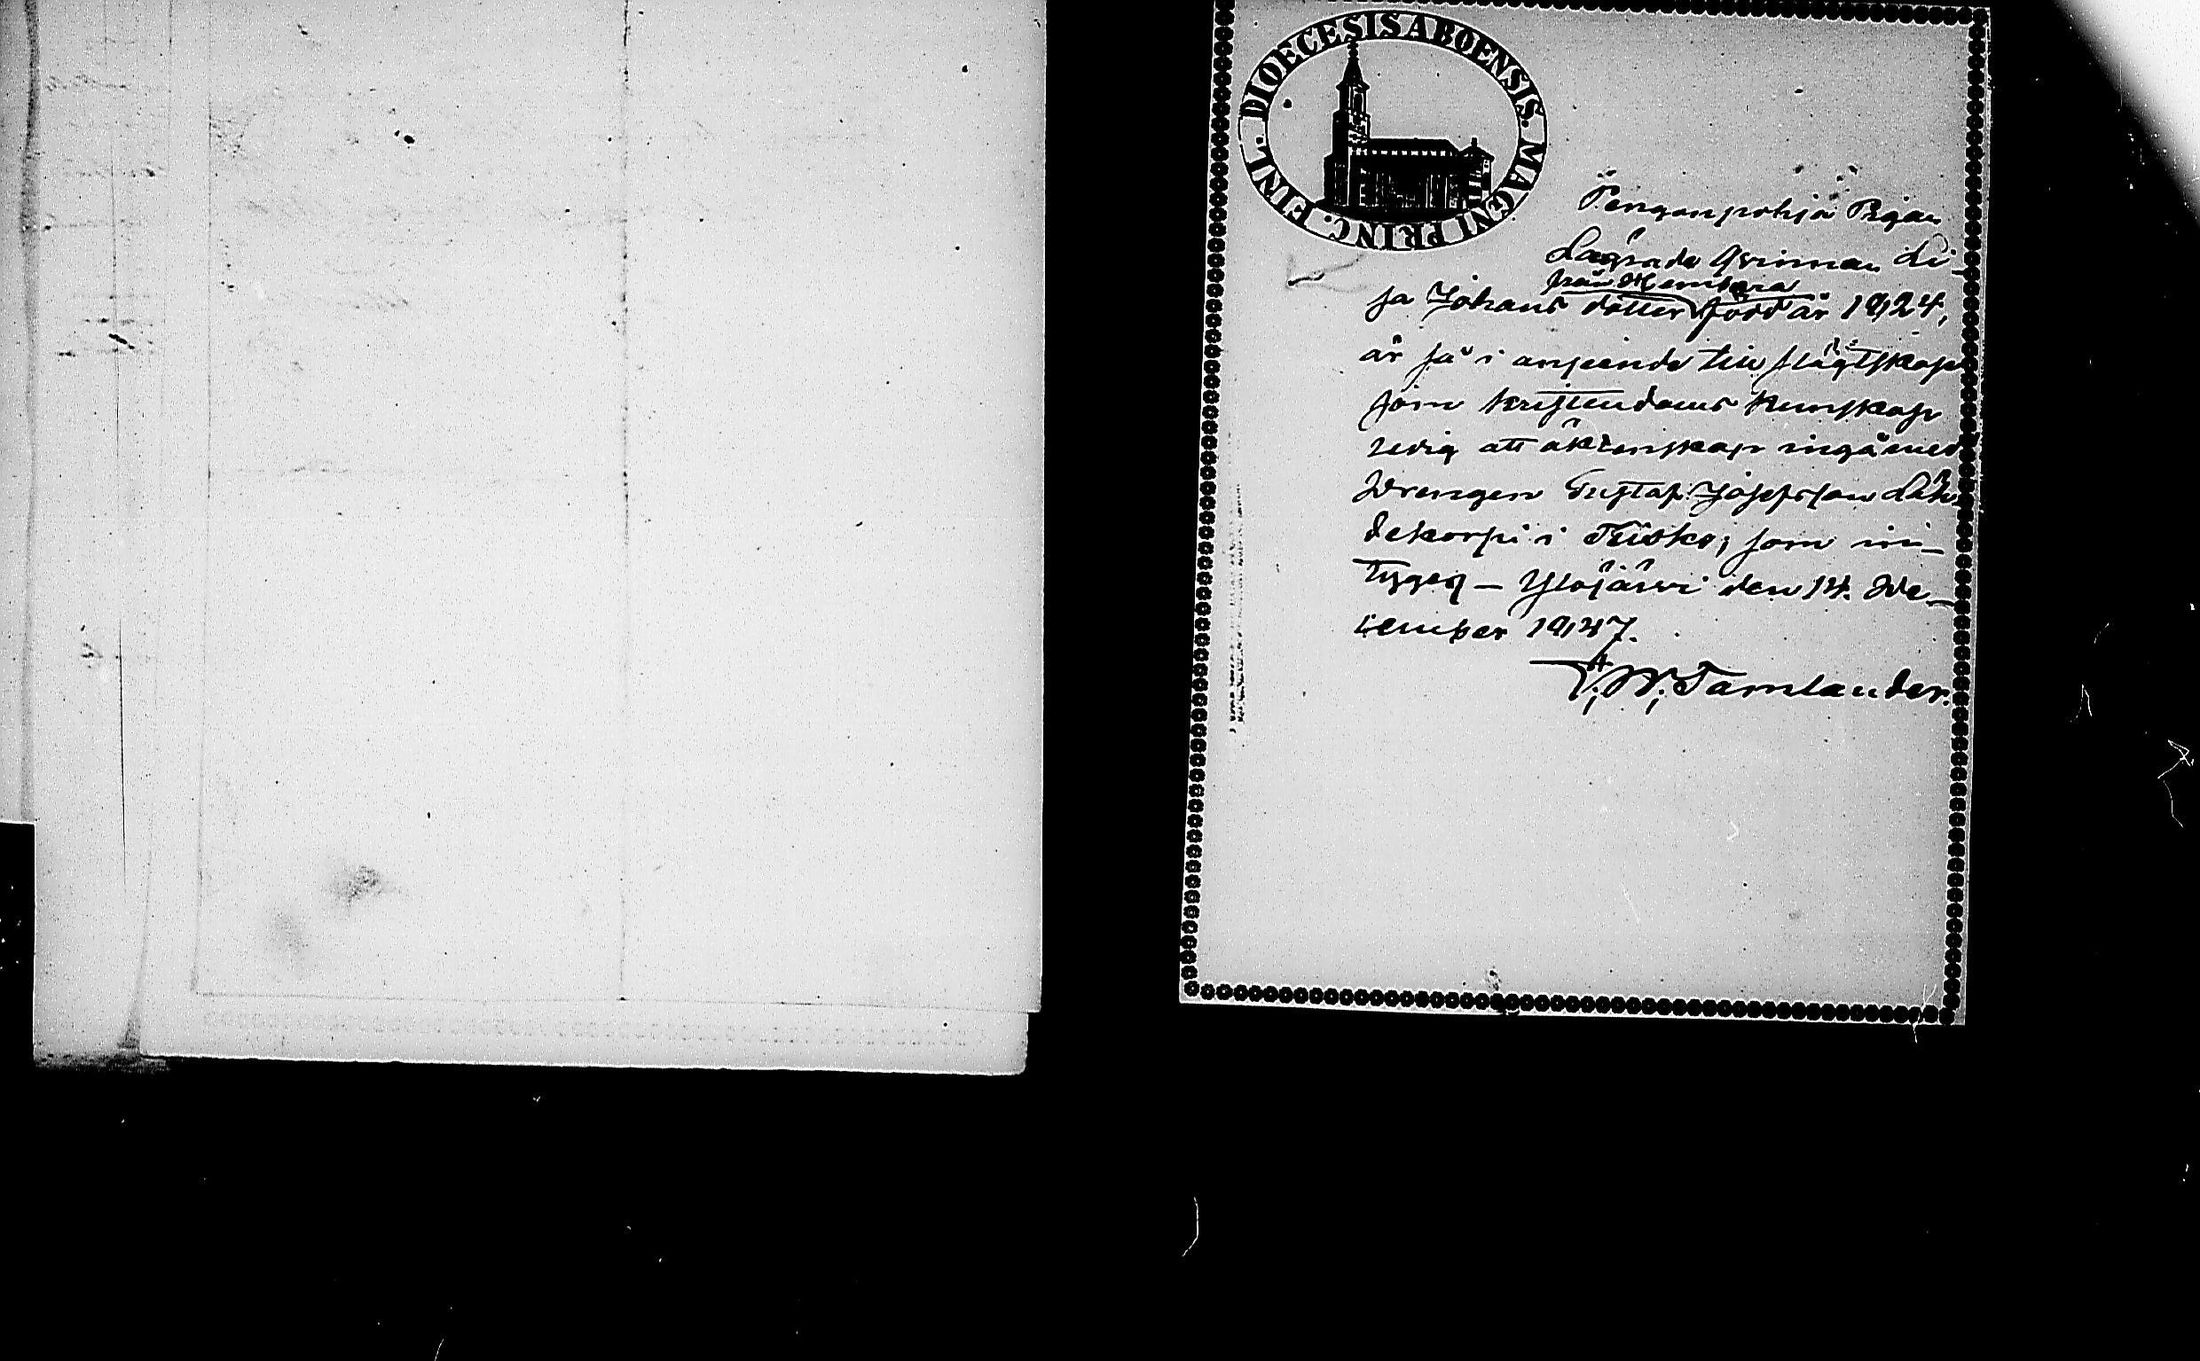 DIOECESIS ABOENSIS. MAGNI PRINC. FINL.
Pengonpohja Pigan
Lägrade Qvinnan Li-
från Hemtara
sa Johans dotter född år 1824,
är så i anseende till slägtskap
som kristendoms kunskap
ledig att äktenskap ingå med
Drengen Gustaf Josefsson Läh
dekorpi i Teisko, som in-
tygeq – Ylöjärvi den 14. De-
cember 1847.
W. Tamlander.